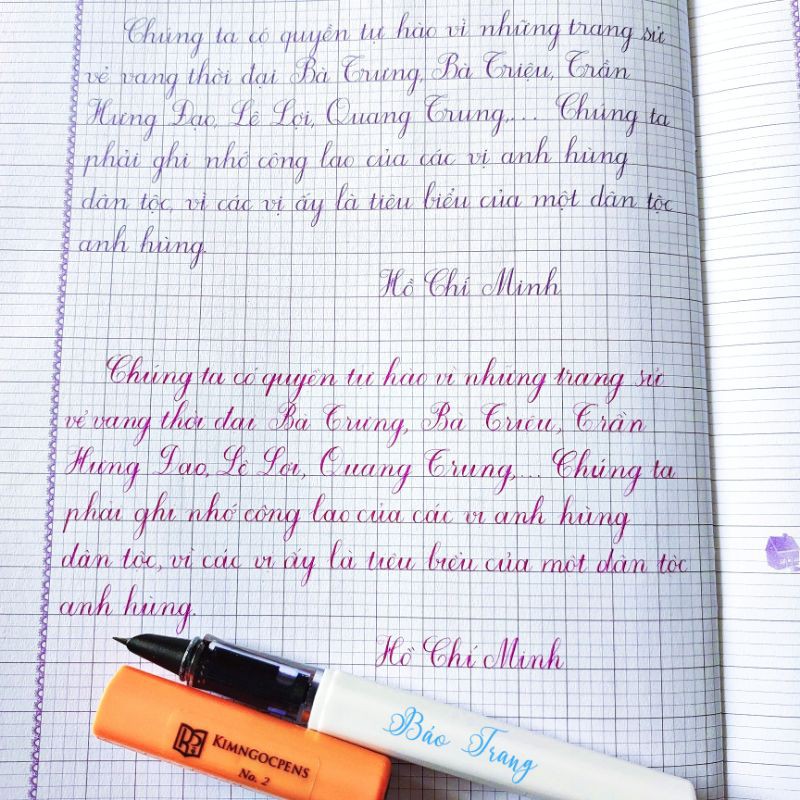 Chúng ta có quyền tự hào vì những trang sử
vẻ vang thời đại Bà Trưng, Bà Triệu, Trần
Hưng Đạo, Lê Lợi, Quang Trung,... Chúng ta
phải ghi nhớ công lao của các vị anh hùng
dân tộc, vì các vị ấy là tiêu biểu của một dân tộc
anh hùng.
Hồ Chí Minh
Chúng ta có quyền tự hào vì những trang sử
vẻ vang thời đại Bà Trưng, Bà Triệu, Trần
Hưng Đạo, Lê Lợi, Quang Trung,... Chúng ta
phải ghi nhớ công lao của các vị anh hùng
dân tộc, vì các vị ấy là tiêu biểu của một dân tộc
anh hùng.
Hồ Chí Minh
Bảo Trang
KIMNGOCPENS
No. 2